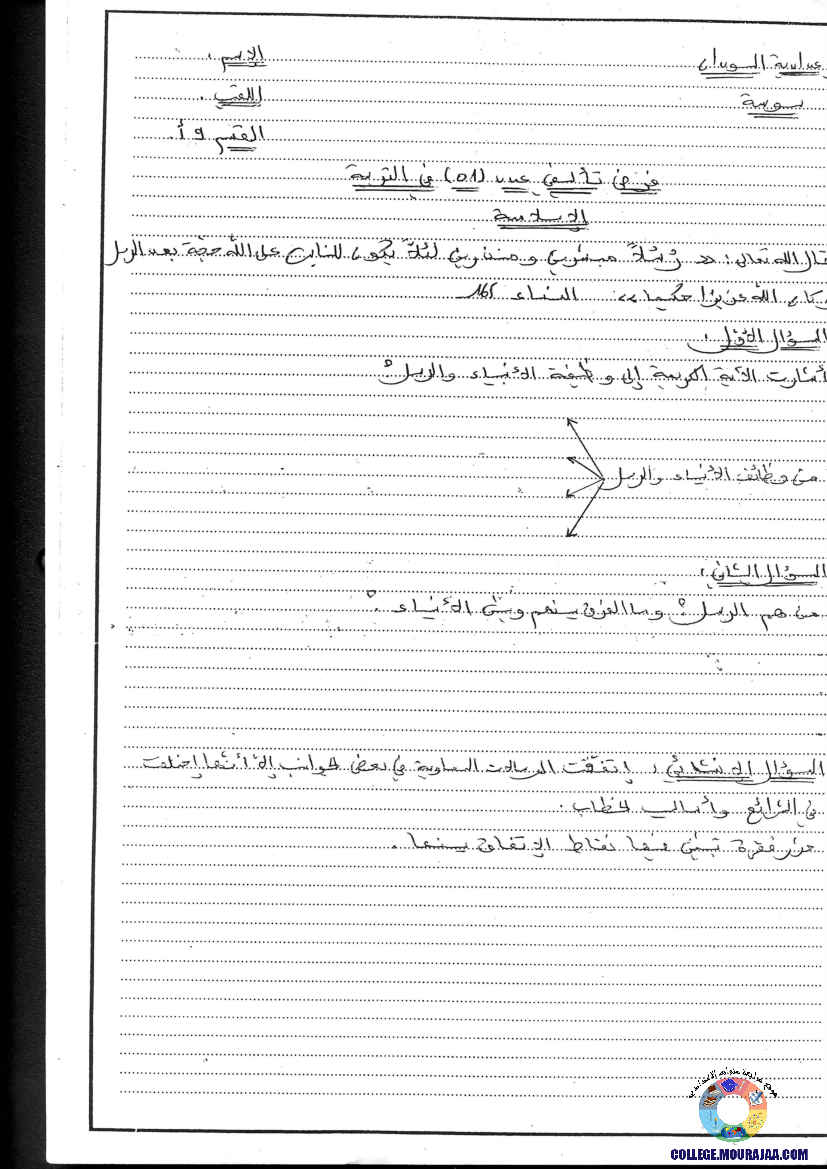 إعدادية السويداء
الاسم :
سوسة
اللقب :
القسم 9 أ.
فرض تأليفي عدد (01) في التربية
الإسلامية
قال الله تعالى : « رُسُلاً مبشّرين و منذرين لئلاّ يكون للناس على الله حجّة بعد الرسل
وكان الله عزيزا حكيما » النساء 165
السؤال الأوّل :
أشارت الآية الكريمة إلى وظيفة الأنبياء والرسل
من وظائف الأنبياء والرسل
السؤال الثاني :
من هم الرسل ؟ وما الفرق بينهم وبين الأنبياء ؟
السؤال الإنشائي : إتفقت الرسالات السماوية في بعض الجوانب إلاّ أنّها إختلفت
في الشرائع وأساليب الخطاب .
حرّر فقرة تبيّن فيها نقاط الإتفاق بينها .
موقع مراجعة
COLLEGE.MOURAJAA.COM